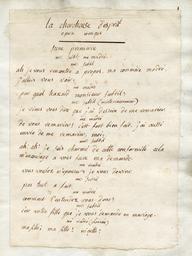 la chercheuse d'esprit
opera comique
scene premiere
mr. subtil, me madré
mr. subtil
ah je vous rencontre a propos, ma commere madré
j'allois chez vous.
me madré
par quel hazard monsieur subtil?
mr. subtil
je viens vous dire que j'ai dessein de me remarier.
me madré
de vous remarier? c'est fort bien fait. j'ai aussi
envie de me remarier, moi.
mr. subtil
ah! ah! je suis charmé de cette conformité. cela
m'encourage a vous faire ma demande.
me madré
vous voulez m'épouser? je vous devine
mr. subtil
pas tout a fait.
me madré
comment l'entendez vous donc?
mr. subtil
c'est votre fille que je vous demande en mariage.
me madré
ma fille! ma fille! nicette!